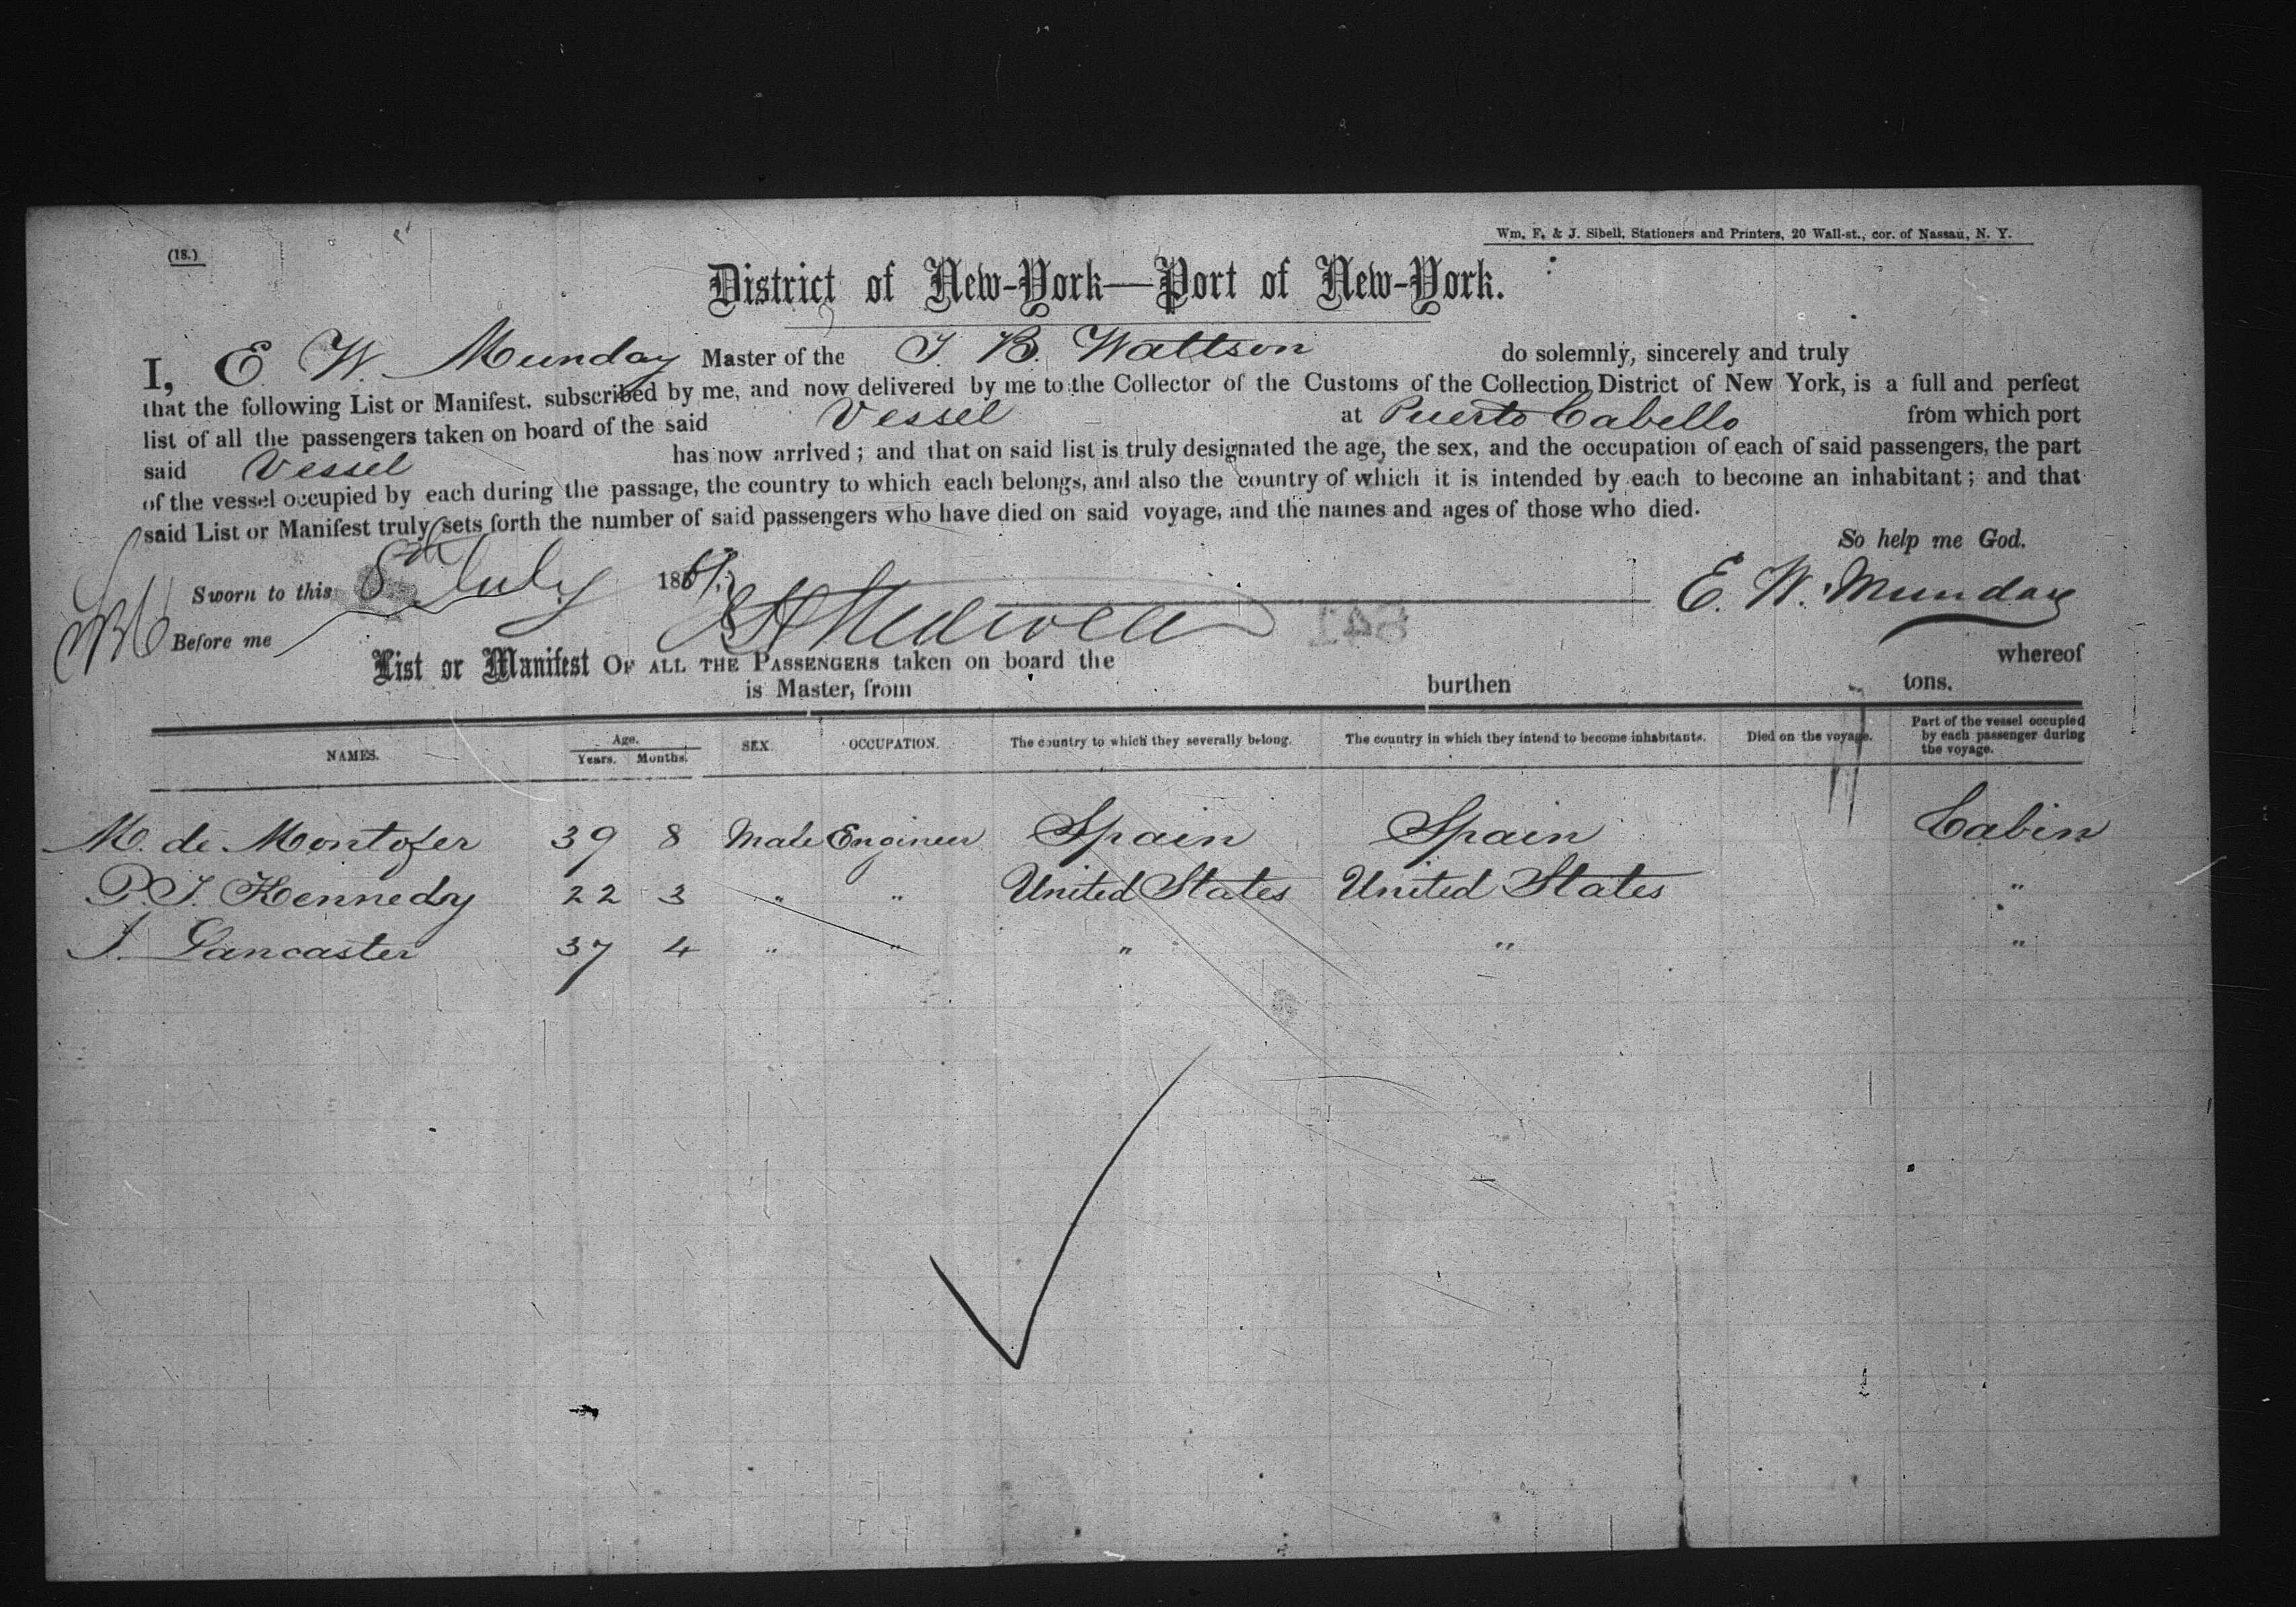 (18.)
Wm. F. & J. Sibell, Stationers and Printers, 20 Wall-st., cor. of Nassau, N. Y.
District of New-York—Port of New-York.
I, E. W. Munday Master of the J. B. Wattson do solemnly, sincerely and truly
that the following List or Manifest. subscribed by me, and now delivered by me to the Collector of the Customs of the Collection District of New York, is a full and perfect
list of all the passengers taken on board of the said Vessel at Puerto Cabello from which port
said Vessel has now arrived; and that on said list is truly designated the age, the sex, and the occupation of each of said passengers, the part
of the vessel occupied by each during the passage, the country to which each belongs, and also the country of which it is intended by each to become an inhabitant; and that
said List or Manifest truly sets forth the number of said passengers who have died on said voyage, and the names and ages of those who died.
So help me God.
Sworn to this 8th July 186
E. W. Munday
Before me
List or Manifest OF ALL THE PASSENGERS taken on board the whereof
is Master, from burthen tons.
NAMES. Age. Years. Months. SEX. OCCUPATION. The country to which they severally belong. The country in which they intend to become inhabitants. Died on the voyage. Part of the vessel occupied by each passenger during the voyage.
M. de Montojer 39 8 Male Engineer Spain Spain Cabin
P. J. Kennedy 22 3 " " United States United States "
J. Lancaster 37 4 " " " " "